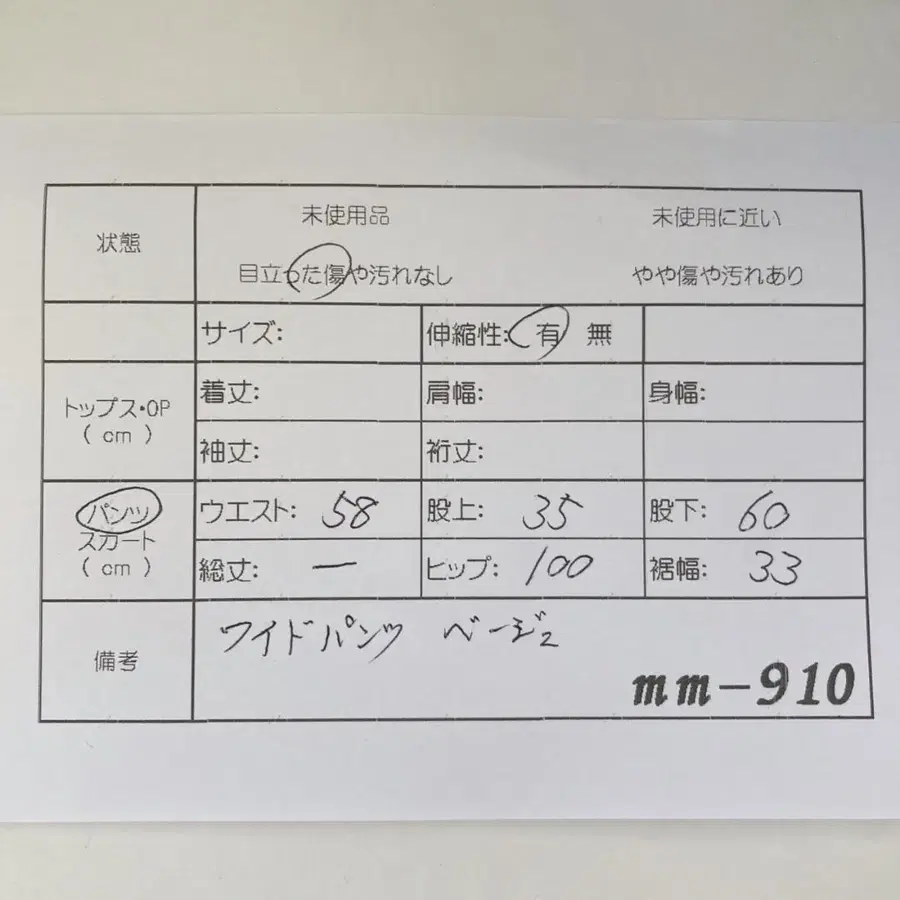 状態
未使用品 未使用に近い
目立った傷や汚れなし やや傷や汚れあり
サイズ: 伸縮性: 有 無
トップス・OP
( cm )
着丈: 肩幅: 身幅:
袖丈: 裄丈:
パンツ
スカート
( cm )
ウエスト: 58 股上: 35 股下: 60
総丈: ー ヒップ: 100 裾幅: 33
備考
ワイドパンツ ベージュ
mm-910